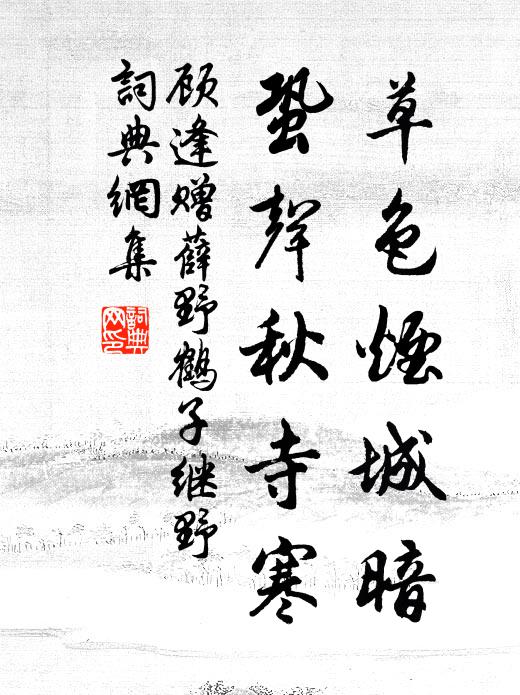 草色煙城暗
蛩聲秋寺寒
顾逢赠薛野鶴子继野
詞典網集
詞典网印